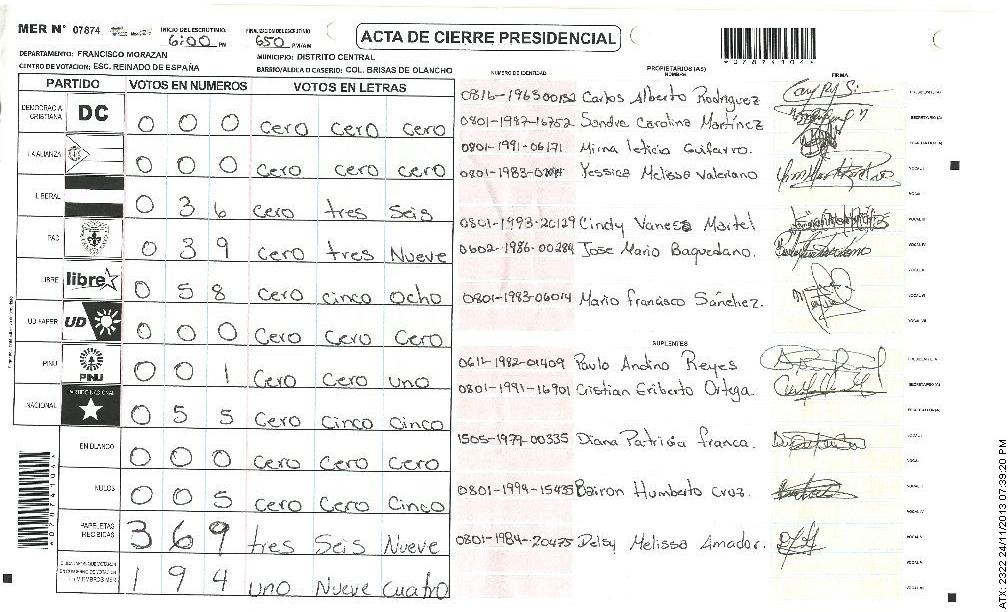 MER N° 07874
INICIO DEL ESCRUTINIO:
6:00 PM
FINALIZACION DEL ESCRUTINIO
650 PM/AM
ACTA DE CIERRE PRESIDENCIAL
DEPARTAMENTO: FRANCISCO MORAZAN
MUNICIPIO: DISTRITO CENTRAL
CENTRO DE VOTACION: ESC. REINADO DE ESPAÑA
BARRIO/ALDEA O CASERIO: COL. BRISAS DE OLANCHO
PARTIDO VOTOS EN NUMEROS VOTOS EN LETRAS
DEMOCRACIA CRISTIANA DC 0 0 0 cero cero cero
LA ALIANZA 0 0 0 cero cero cero
LIBERAL 0 3 6 cero tres seis
PAC 0 3 9 cero tres Nueve
LIBRE libre 0 5 8 cero cinco ocho
UD FAPER UD 0 0 0 cero cero cero
PINU PINU 0 0 1 cero cero uno
NACIONAL PARTIDO NACIONAL 0 5 5 cero cinco cinco
EN BLANCO 0 0 0 cero cero cero
NULOS 0 0 5 cero cero cinco
PAPELETAS RECIBIDAS 3 6 9 tres seis Nueve
1 9 4 uno Nueve cuatro
NUMERO DE IDENTIDAD
PROPIETARIOS (AS)
NOMBRE
FIRMA
0816-1963 00152 Carlos Alberto Rodriguez
0801-1987-16752 Sandra Carolina Martínez
0801-1991-06171 Mirna leticia Guifarro.
0801-1983- Yessica Melissa Valeriano
0801-1993-20129 Cindy Vanesa Martel
0602-1986-00284 Jose Mario Baquedano.
0801-1983-06014 Mario francisco Sánchez.
SUPLENTES
0611-1982-01409 Paulo Andino Reyes
0801-1991-16901 Cristian Eriberto Ortega.
1505-1977-00335 Diana Patricia franca.
0801-1994-15435 Bairon Humberto Cruz.
0801-1984-20475 Delsy Melissa Amador.
ATX: 2322 24/11/2013 07:39:20 PM